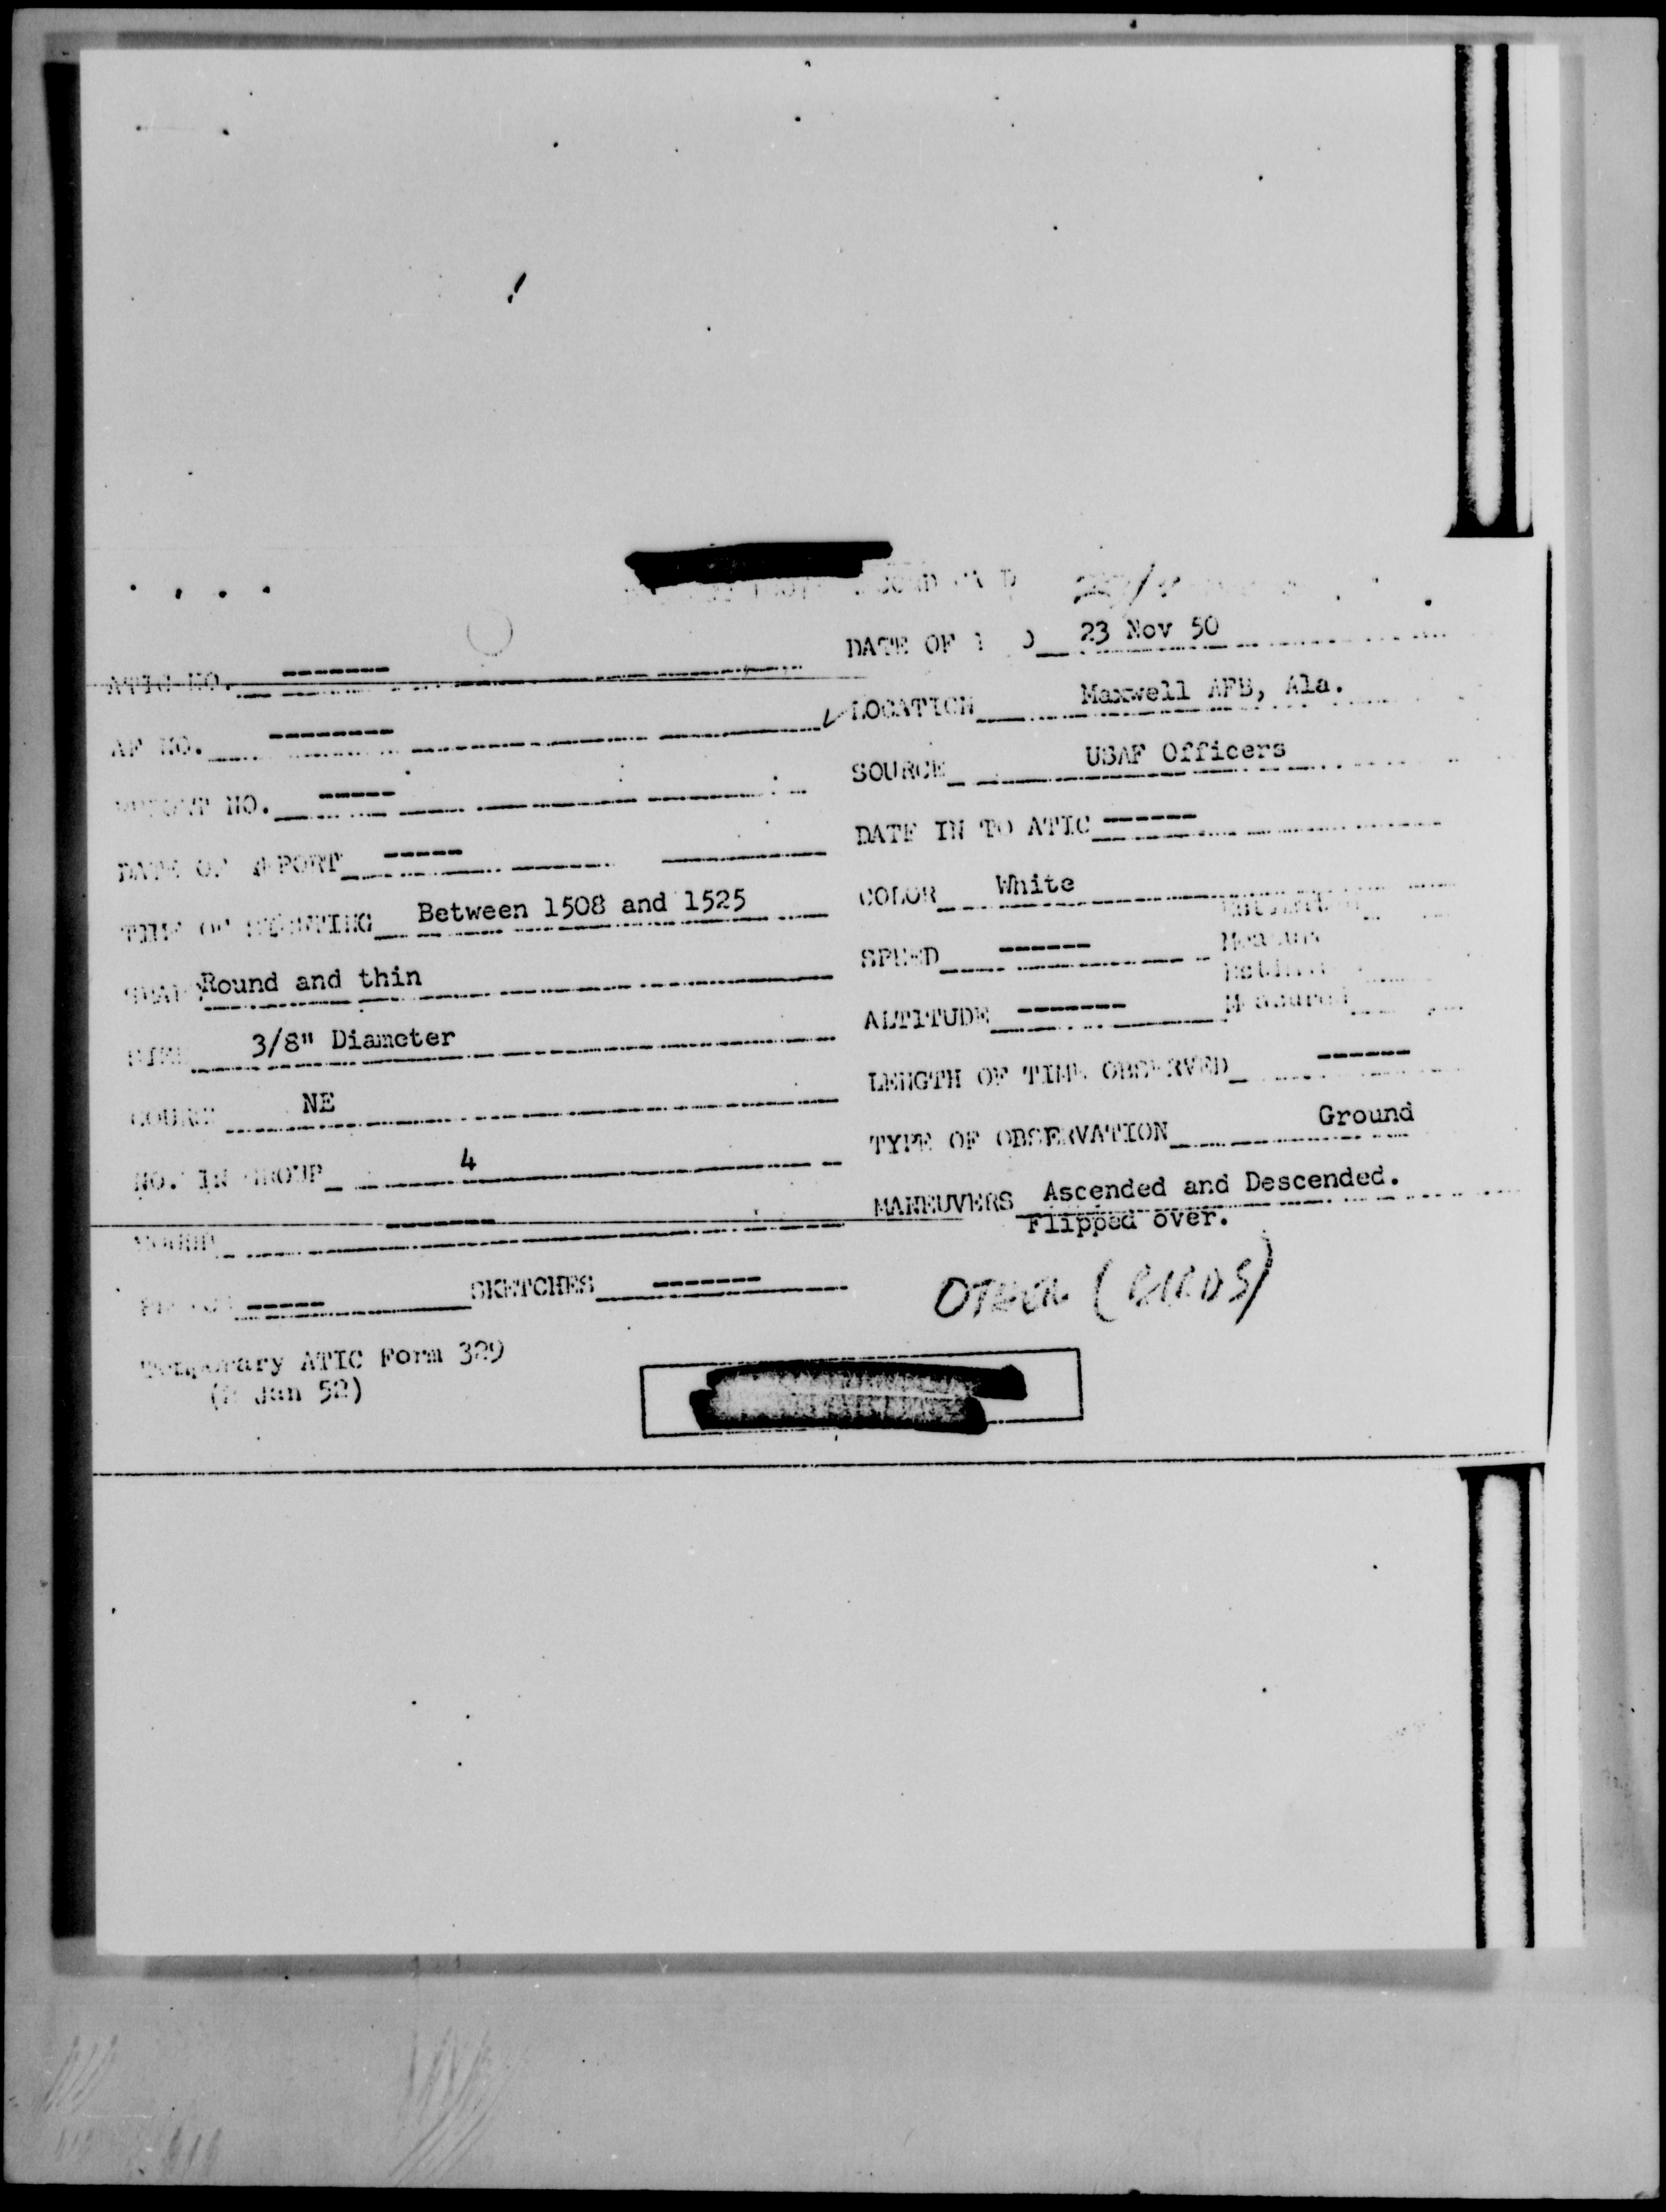 DATE OF 23 Nov 50
ATIC NO. -------
LOCATION Maxwell AFB, Ala.
AF NO. --------
SOURCE USAF Officers
NO. -----
DATE IN TO ATIC ------
DATE OF REPORT -----
COLOR White
TIME OF SIGHTING Between 1508 and 1525
SPEED ------
Round and thin
ALTITUDE ------- Measured
SIZE 3/8" Diameter
LENGTH OF TIME OBSERVED ------
COURSE NE
TYPE OF OBSERVATION Ground
NO. IN GROUP 4
MANEUVERS Ascended and Descended.
Flipped over.
-------
SKETCHES -------
OTHER (BIRDS)
Temporary ATIC Form 329
Jan 52)